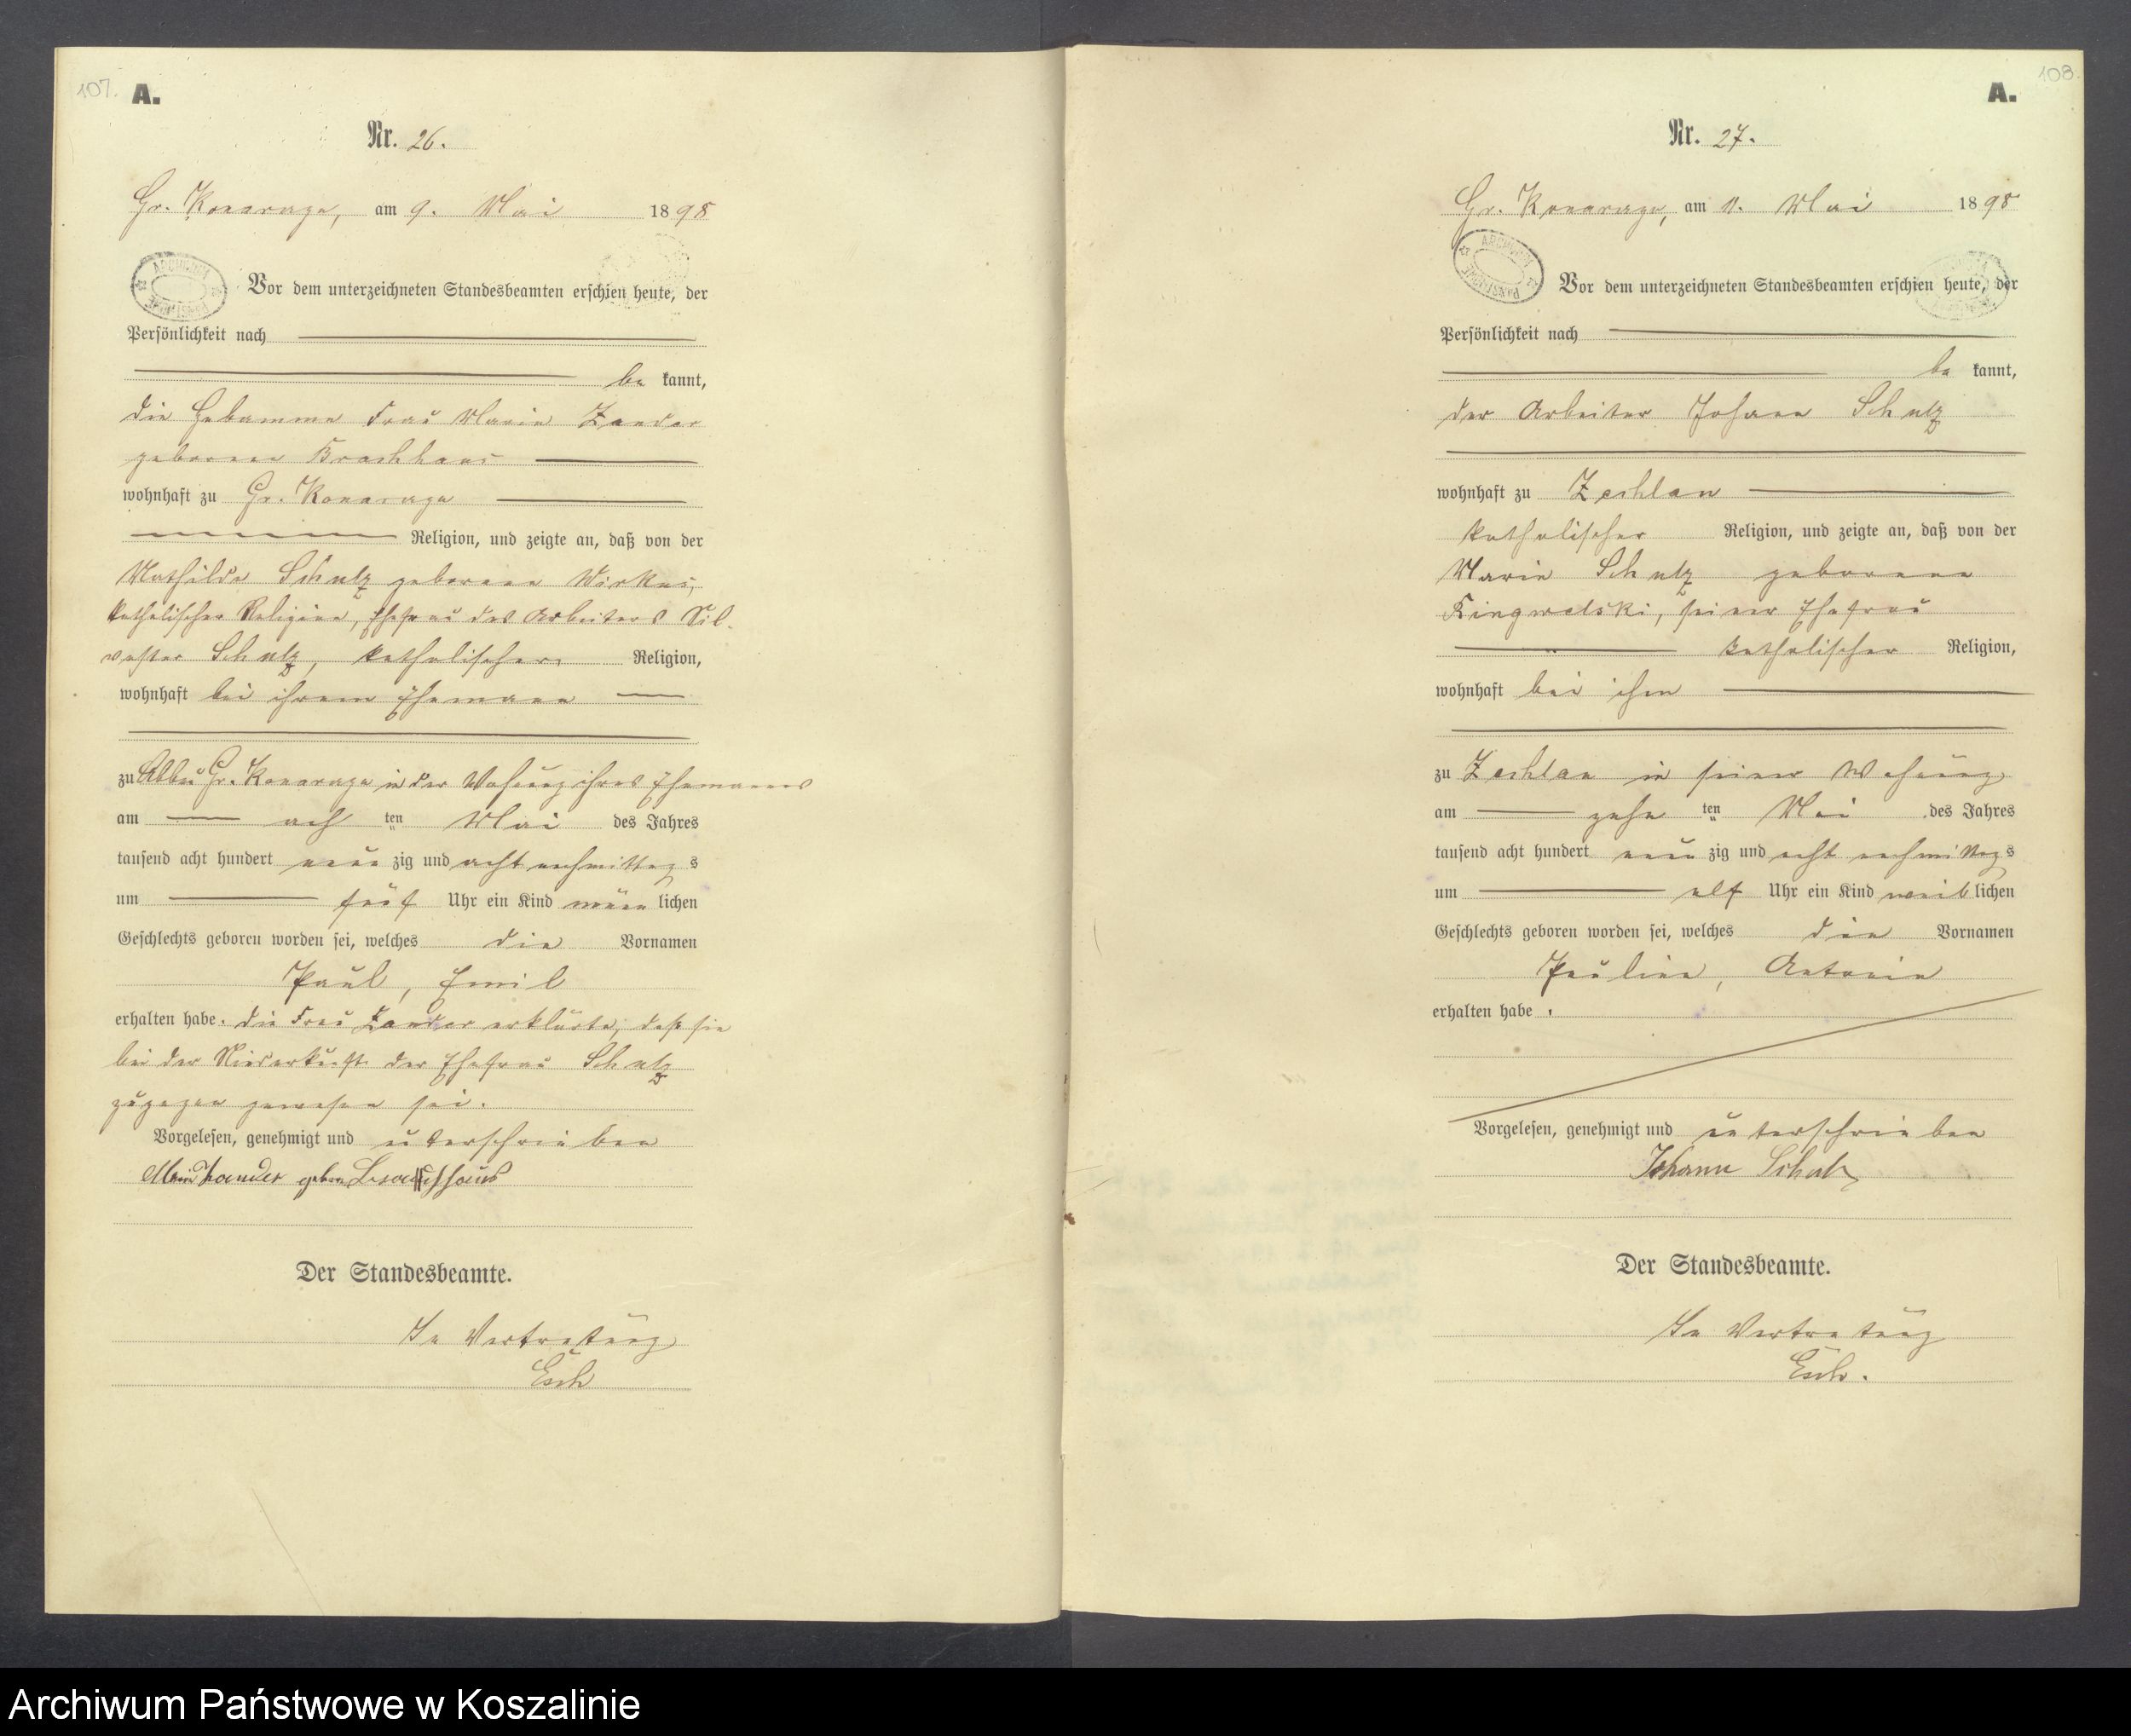 107.
A.
Nr. 26.
Gr. Konarzyn, am 9. Mai 1898
Vor dem unterzeichneten Standesbeamten erschien heute, der
Persönlichkeit nach
be kannt,
die Hebamme Frau Marie Zander
geborene Brackhaus
wohnhaft zu Gr. Konarzyn
Religion, und zeigte an, daß von der
Mathilde Schulz geborene Wirkus,
katholischer Religion, Ehefrau des Arbeiters Sil-
vester Schulz, katholischer Religion,
wohnhaft bei ihrem Ehemann
zu Abbau Gr. Konarzyn in der Wohnung ihres Ehemannes
am ach ten Mai des Jahres
tausend acht hundert neun zig und acht nachmittags
um fünf Uhr ein Kind männ lichen
Geschlechts geboren worden sei, welches die Vornamen
Paul, Emil
erhalten habe. die Frau Zander erklärte, daß sie
bei der Niederkunft der Ehefrau Schulz
zugegen gewesen sei.
Vorgelesen, genehmigt und unterschrieben
Marie Zander geborn
Der Standesbeamte.
In Vertretung
Esch
108.
A.
Nr. 27.
Gr. Konarzyn, am 11. Mai 1898
Vor dem unterzeichneten Standesbeamten erschien heute, der
Persönlichkeit nach
be kannt,
der Arbeiter Johann Schulz
wohnhaft zu Zechlau
katholischer Religion, und zeigte an, daß von der
Marie Schulz geborene
seiner Ehefrau
katholischer Religion,
wohnhaft bei ihm
zu Zechlau in seiner Wohnung
am zehn ten Mai des Jahres
tausend acht hundert neun zig und acht nachmittags
um elf Uhr ein Kind weib lichen
Geschlechts geboren worden sei, welches die Vornamen
Pauline, Antonie
erhalten habe.
Vorgelesen, genehmigt und unterschrieben
Johann Schulz
Der Standesbeamte.
In Vertretung
Esch.
Archiwum Państwowe w Koszalinie